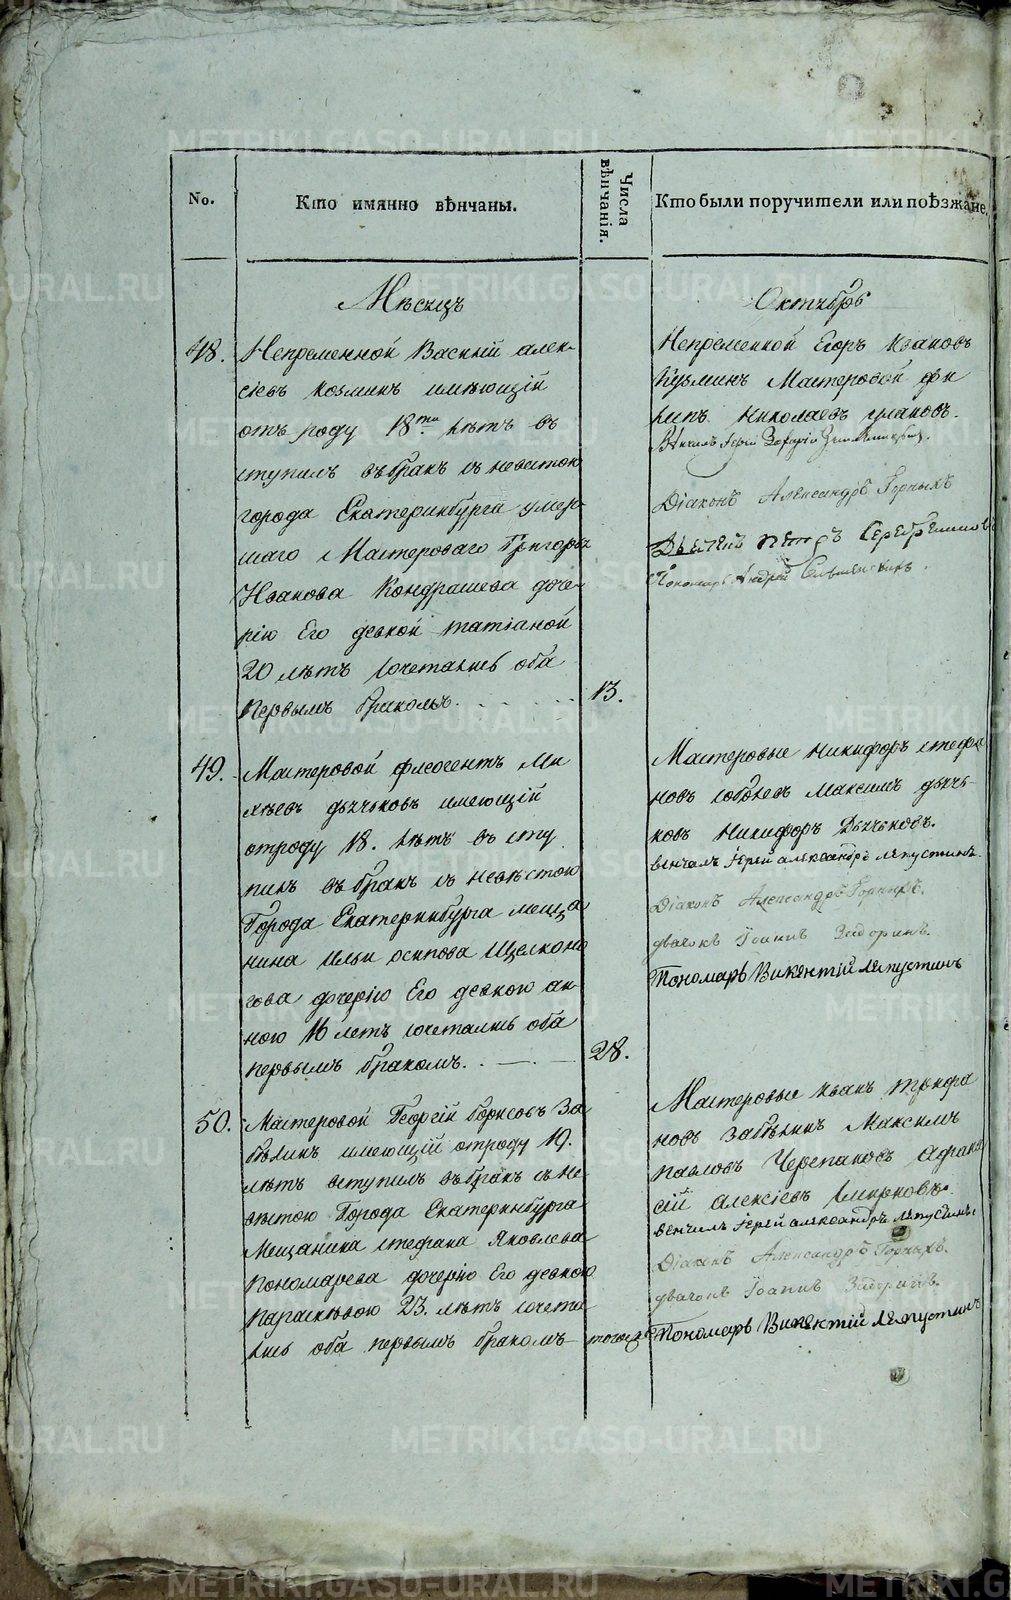 No.
Кто имянно вѣнчаны.
Числа вѣнчанія.
Кто были поручители или поѣзжане.
Мѣсяцъ
Октябрь
48. Непременной Василій алек-
сіевъ козминъ имѣющій
отъ роду 18ти лѣтъ в
ступилъ въ бракъ съ невестою
города Екатеринбурга умер-
шаго Мастероваго Григорья
Иванова Кондрашева доче-
рію Его девкой татіаной
20 лѣтъ сочетались оба
первымъ бракомъ.
13.
Непременной Егоръ Ивановъ
Кузминъ Мастеровой фи
липъ николаевъ улановъ.
Вѣнчалъ Іерей
Діаконъ Александръ Горныхъ
Петръ Серебренников
Пономарь Андрей
49. Мастеровой Ми
хѣевъ дьячковъ имеющій
отроду 18. лѣтъ в сту
пилъ въ бракъ съ невѣстою
Города Екатеринбурга меща
нина ильи осипова Щелконо
гова дочерію Его девкою ан-
ною 16 летъ сочетались оба
первымъ бракомъ.
28.
Мастеровые никифоръ стефа
новъ соболевъ Максимъ дьяч-
ковъ никифоръ Дьячковъ.
венчалъ Іерей александръ ляпустинъ
Діаконъ Александръ Горныхъ.
дьячокъ Іоаннъ Задоринъ.
Пономарь Викентій Ляпустинъ
50. Мастеровой Георгій борисовъ За
бѣлинъ имеющій отроду 19.
лѣтъ вступилъ въ бракъ съ не-
вѣстою Города Екатеринбурга
Мещанина стефана Яковлева
пономарева дочерію Его девкою
параскѣвою 23. лѣтъ сочета
лись оба первымъ бракомъ
тогожъ
Мастеровые иванъ трифа
новъ забѣлинъ Максимъ
павловъ Черепановъ Афана
сій алексіевъ смирновъ.
венчалъ Іерей александръ ляпустинъ
Діаконъ Александръ Горныхъ.
дьячокъ Іоаннъ Задоринъ.
Пономарь Викентій Ляпустинъ
METRIKI.GASO-URAL.RU